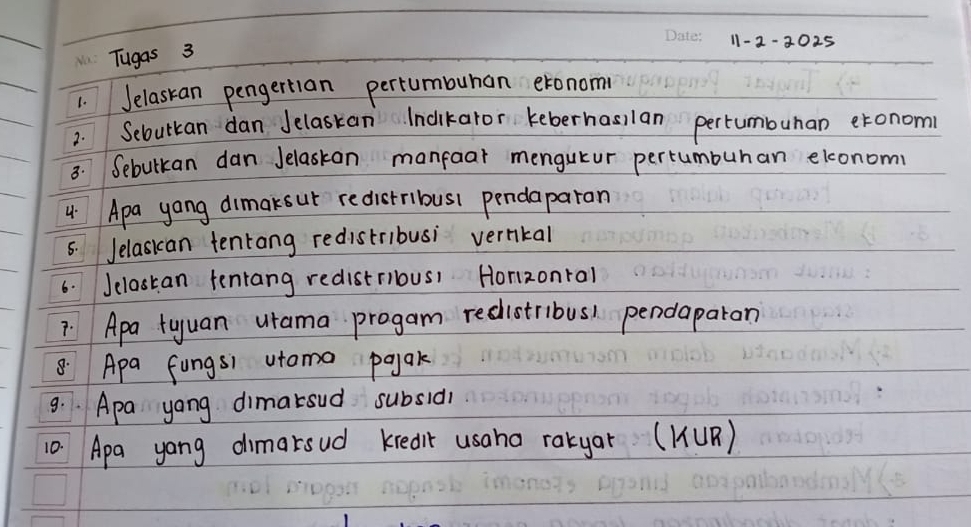 No: Tugas 3
Date: 11-2-2025
1. Jelaskan pengertian pertumbuhan ekonomi
2. Sebutkan dan Jelaskan Indikator keberhasilan pertumbuhan ekonomi
3. Sebutkan dan Jelaskan manfaat mengukur pertumbuhan ekonomi
4. Apa yang dimaksut redistribusi pendapatan
5. Jelaskan tentang redistribusi vertikal
6. Jelaskan tentang redistribusi Horizontal
7. Apa tujuan utama progam redistribusi pendapatan
8. Apa fungsi utama pajak
9. Apa yang dimaksud subsidi
10. Apa yang dimaksud kredit usaha rakyat (KUR)